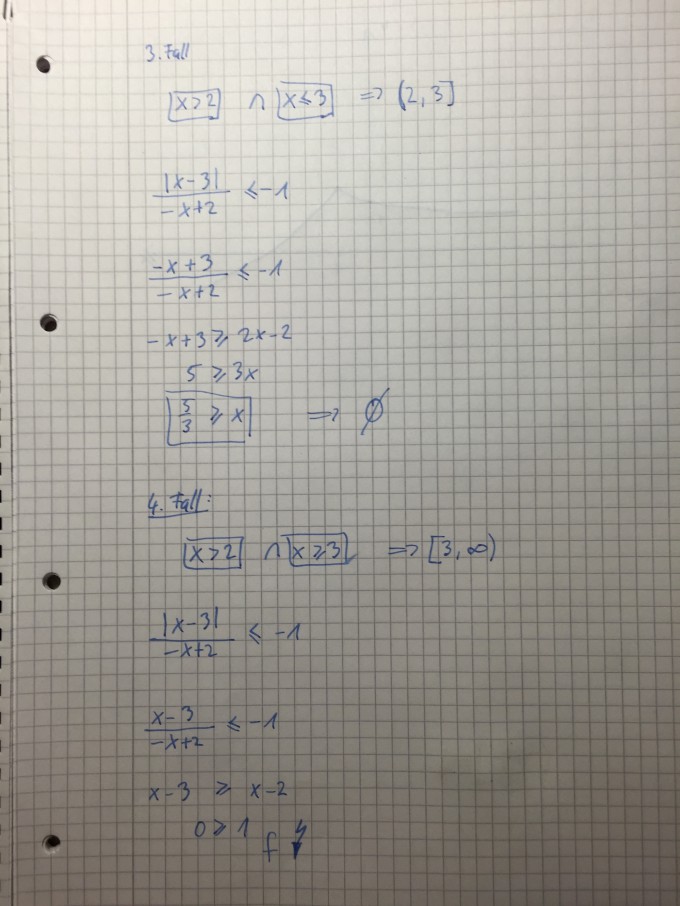 3. Fall
x>2 ∩ x≤3 ⇒ (2,3]
|x-3|/-x+2 ≤ -1
-x+3/-x+2 ≤ -1
-x+3 ≥ 2x-2
5 ≥ 3x
5/3 ≥ x ⇒ ∅
4. Fall:
x>2 ∩ x≥3 ⇒ [3,∞)
|x-3|/-x+2 ≤ -1
x-3/-x+2 ≤ -1
x-3 ≥ x-2
0 ≥ 1 f ↯